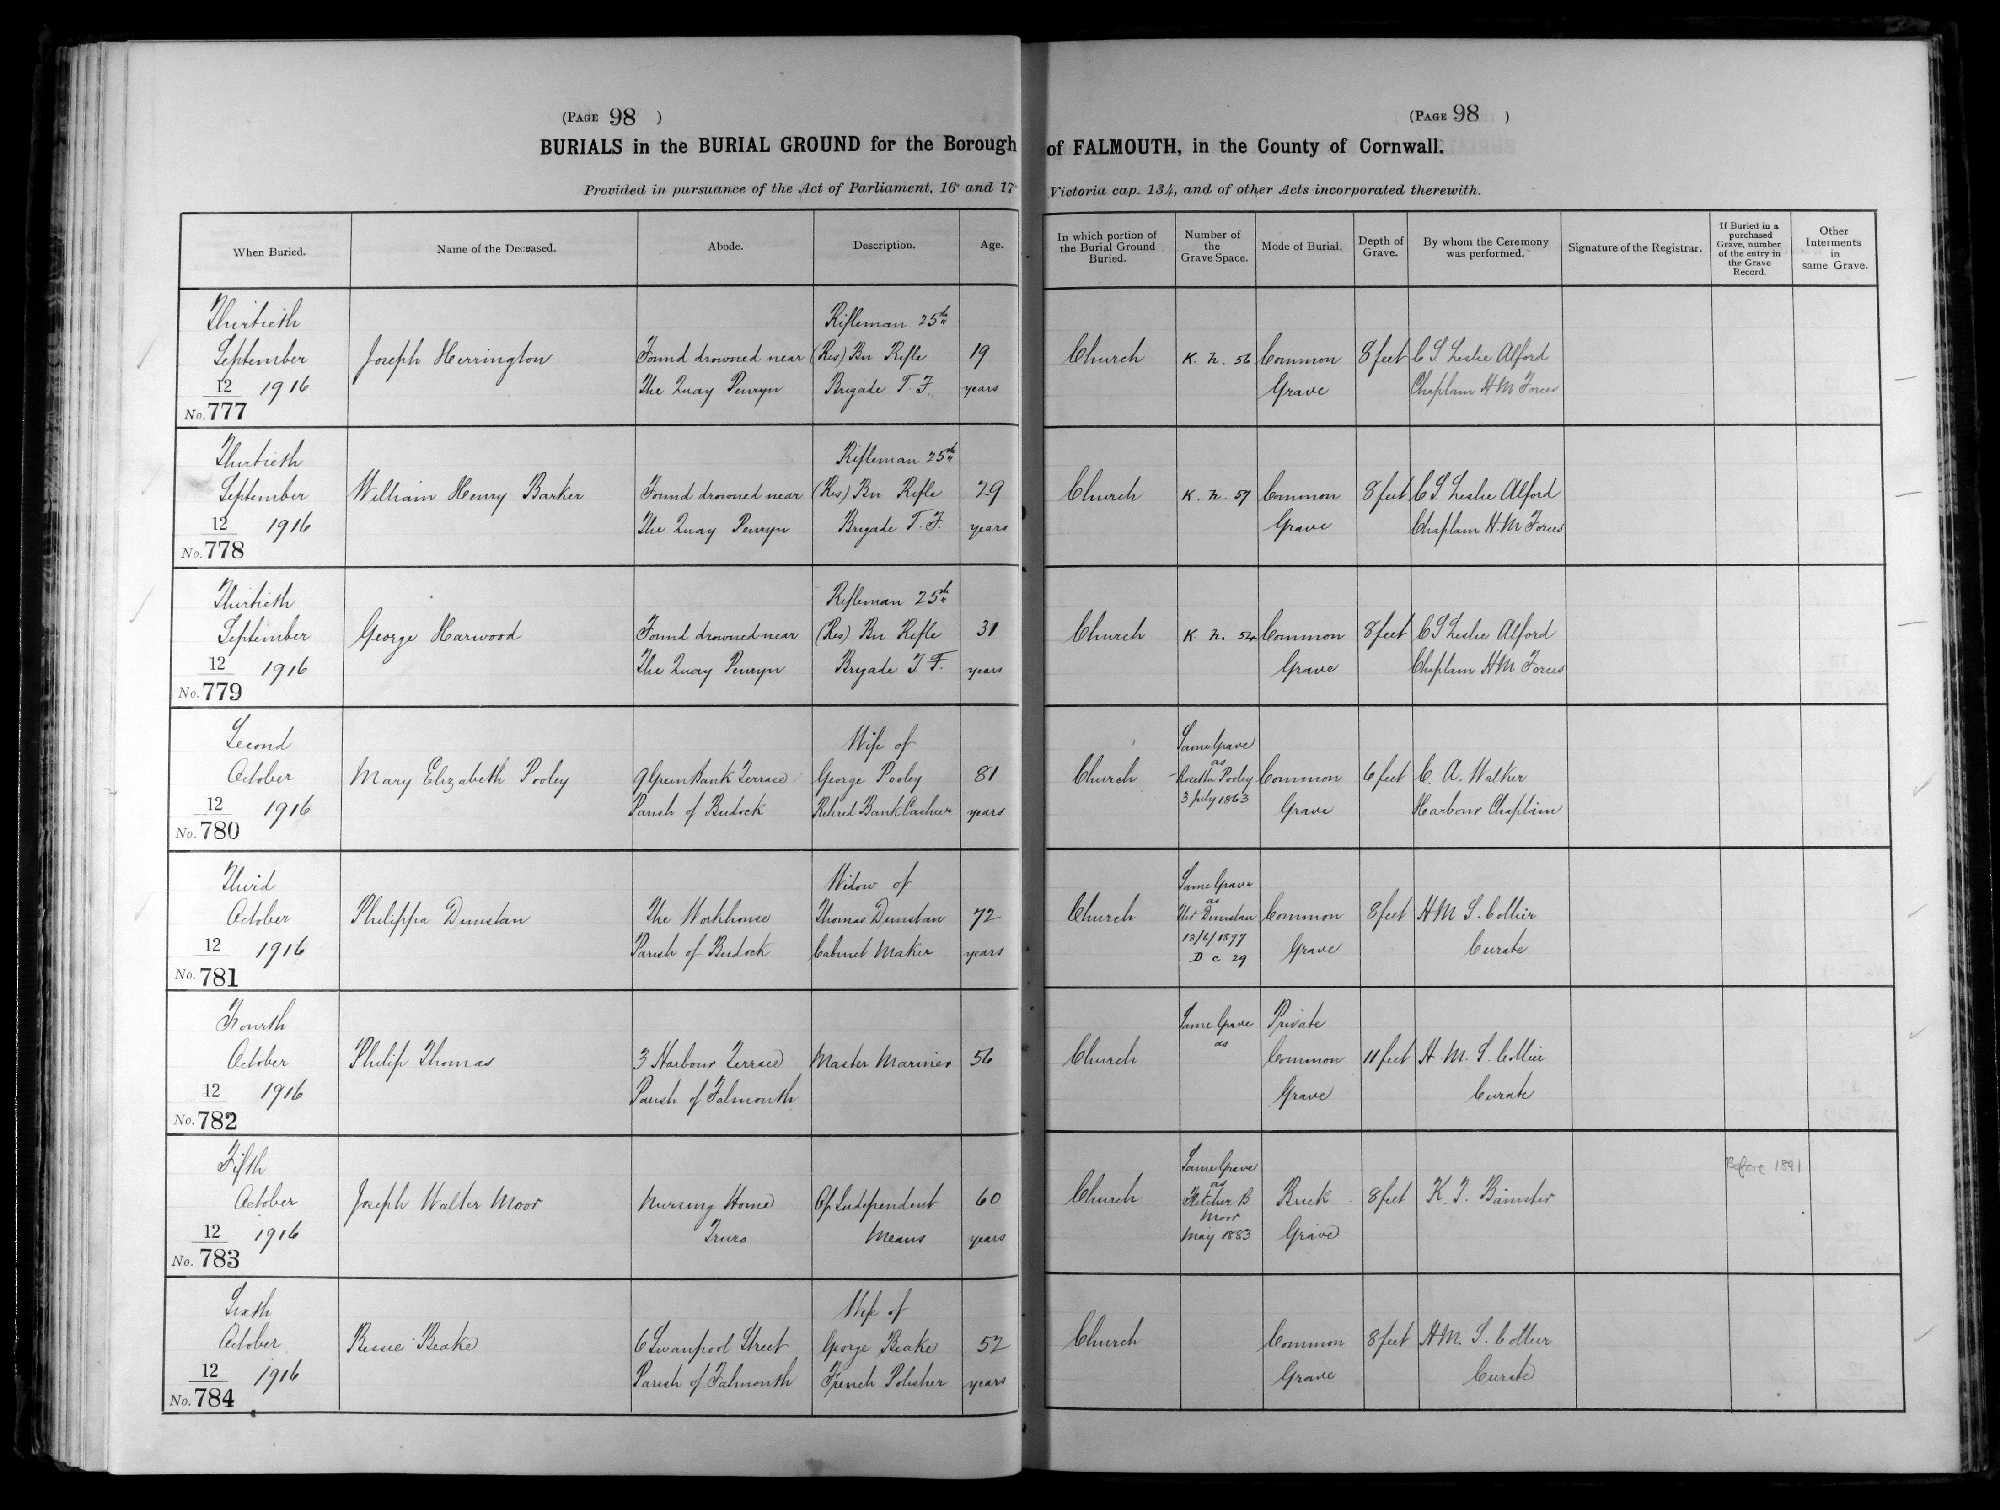 (PAGE 98 )
BURIALS in the BURIAL GROUND for the Borough
Provided in pursuance of the Act of Parliament, 16 and 17
When Buried.
Name of the Deceased.
Abode.
Description.
Age.
Thirtieth
September
12
1916
No. 777
Joseph Herrington
Found drowned near
The Quay Penryn
Rifleman 25th
(Res) Bn Rifle
Brigade T. F.
19
years
Thirtieth
September
12
1916
No. 778
William Henry Barker
Found drowned near
The Quay Penryn
Rifleman 25th
(Res) Bn Rifle
Brigade T. F.
29
years
Thirtieth
September
12
1916
No. 779
George Harwood
Found drowned near
The Quay Penryn
Rifleman 25th
(Res) Bn Rifle
Brigade T. F.
31
years
Second
October
12
1916
No. 780
Mary Elizabeth Pooley
9 Greenbank Terrace
Parish of Budock
Wife of
George Pooley
Retired Bank Cashier
81
years
Third
October
12
1916
No. 781
Philippa Dunstan
The Workhouse
Parish of Budock
Widow of
Thomas Dunstan
Cabinet Maker
72
years
Fourth
October
12
1916
No. 782
Philip Thomas
3 Harbour Terrace
Parish of Falmouth
Master Mariner
56
Fifth
October
12
1916
No. 783
Joseph Walter Moor
Nursing Home
Truro
Of Independent
Means
60
years
Sixth
October
12
1916
No. 784
Bessie Beake
6 Swanpool Street
Parish of Falmouth
Wife of
George Beake
French Polisher
52
years
(PAGE 98 )
of FALMOUTH, in the County of Cornwall.
Victoria cap. 134, and of other Acts incorporated therewith.
In which portion of
the Burial Ground
Buried.
Number of
the
Grave Space.
Mode of Burial.
Depth of
Grave.
By whom the Ceremony
was performed.
Signature of the Registrar.
If Buried in a
purchased
Grave, number
of the entry in
the Grave
Record.
Other
Interments
in
same Grave.
Church
K. N. 56
Common
Grave
8 feet
C S Leslie Alford
Chaplain H M Forces
Church
K. N. 57
Common
Grave
8 feet
C S Leslie Alford
Chaplain H. M Forces
Church
K. N. 54
Common
Grave
8 feet
C S Leslie Alford
Chaplain H M Forces
Church
Same Grave
as
Pooley
3 July 1863
Common
Grave
6 feet
C. A. Walker
Harbour Chaplain
Church
Same Grave
as
Dunstan
D C 29
Common
Grave
8 feet
H M S. Collier
Curate
Church
Same Grave
as
Private
Common
Grave
11 feet
H. M. S. Collier
Curate
Church
Same Grave
as
Fletcher B
Moor
May 1883
Brick
Grave
8 feet
Before 1891
Church
Common
Grave
8 feet
H M. S. Collier
Curate